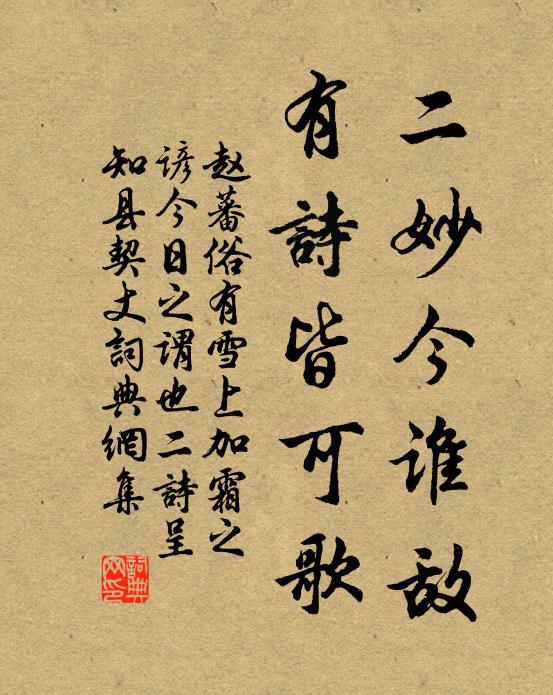 二妙今谁敌
有詩皆可歌
赵蕃俗有雪上加霜之
谚今日之谓也二詩呈
知县契丈詞典網集
詞典网印